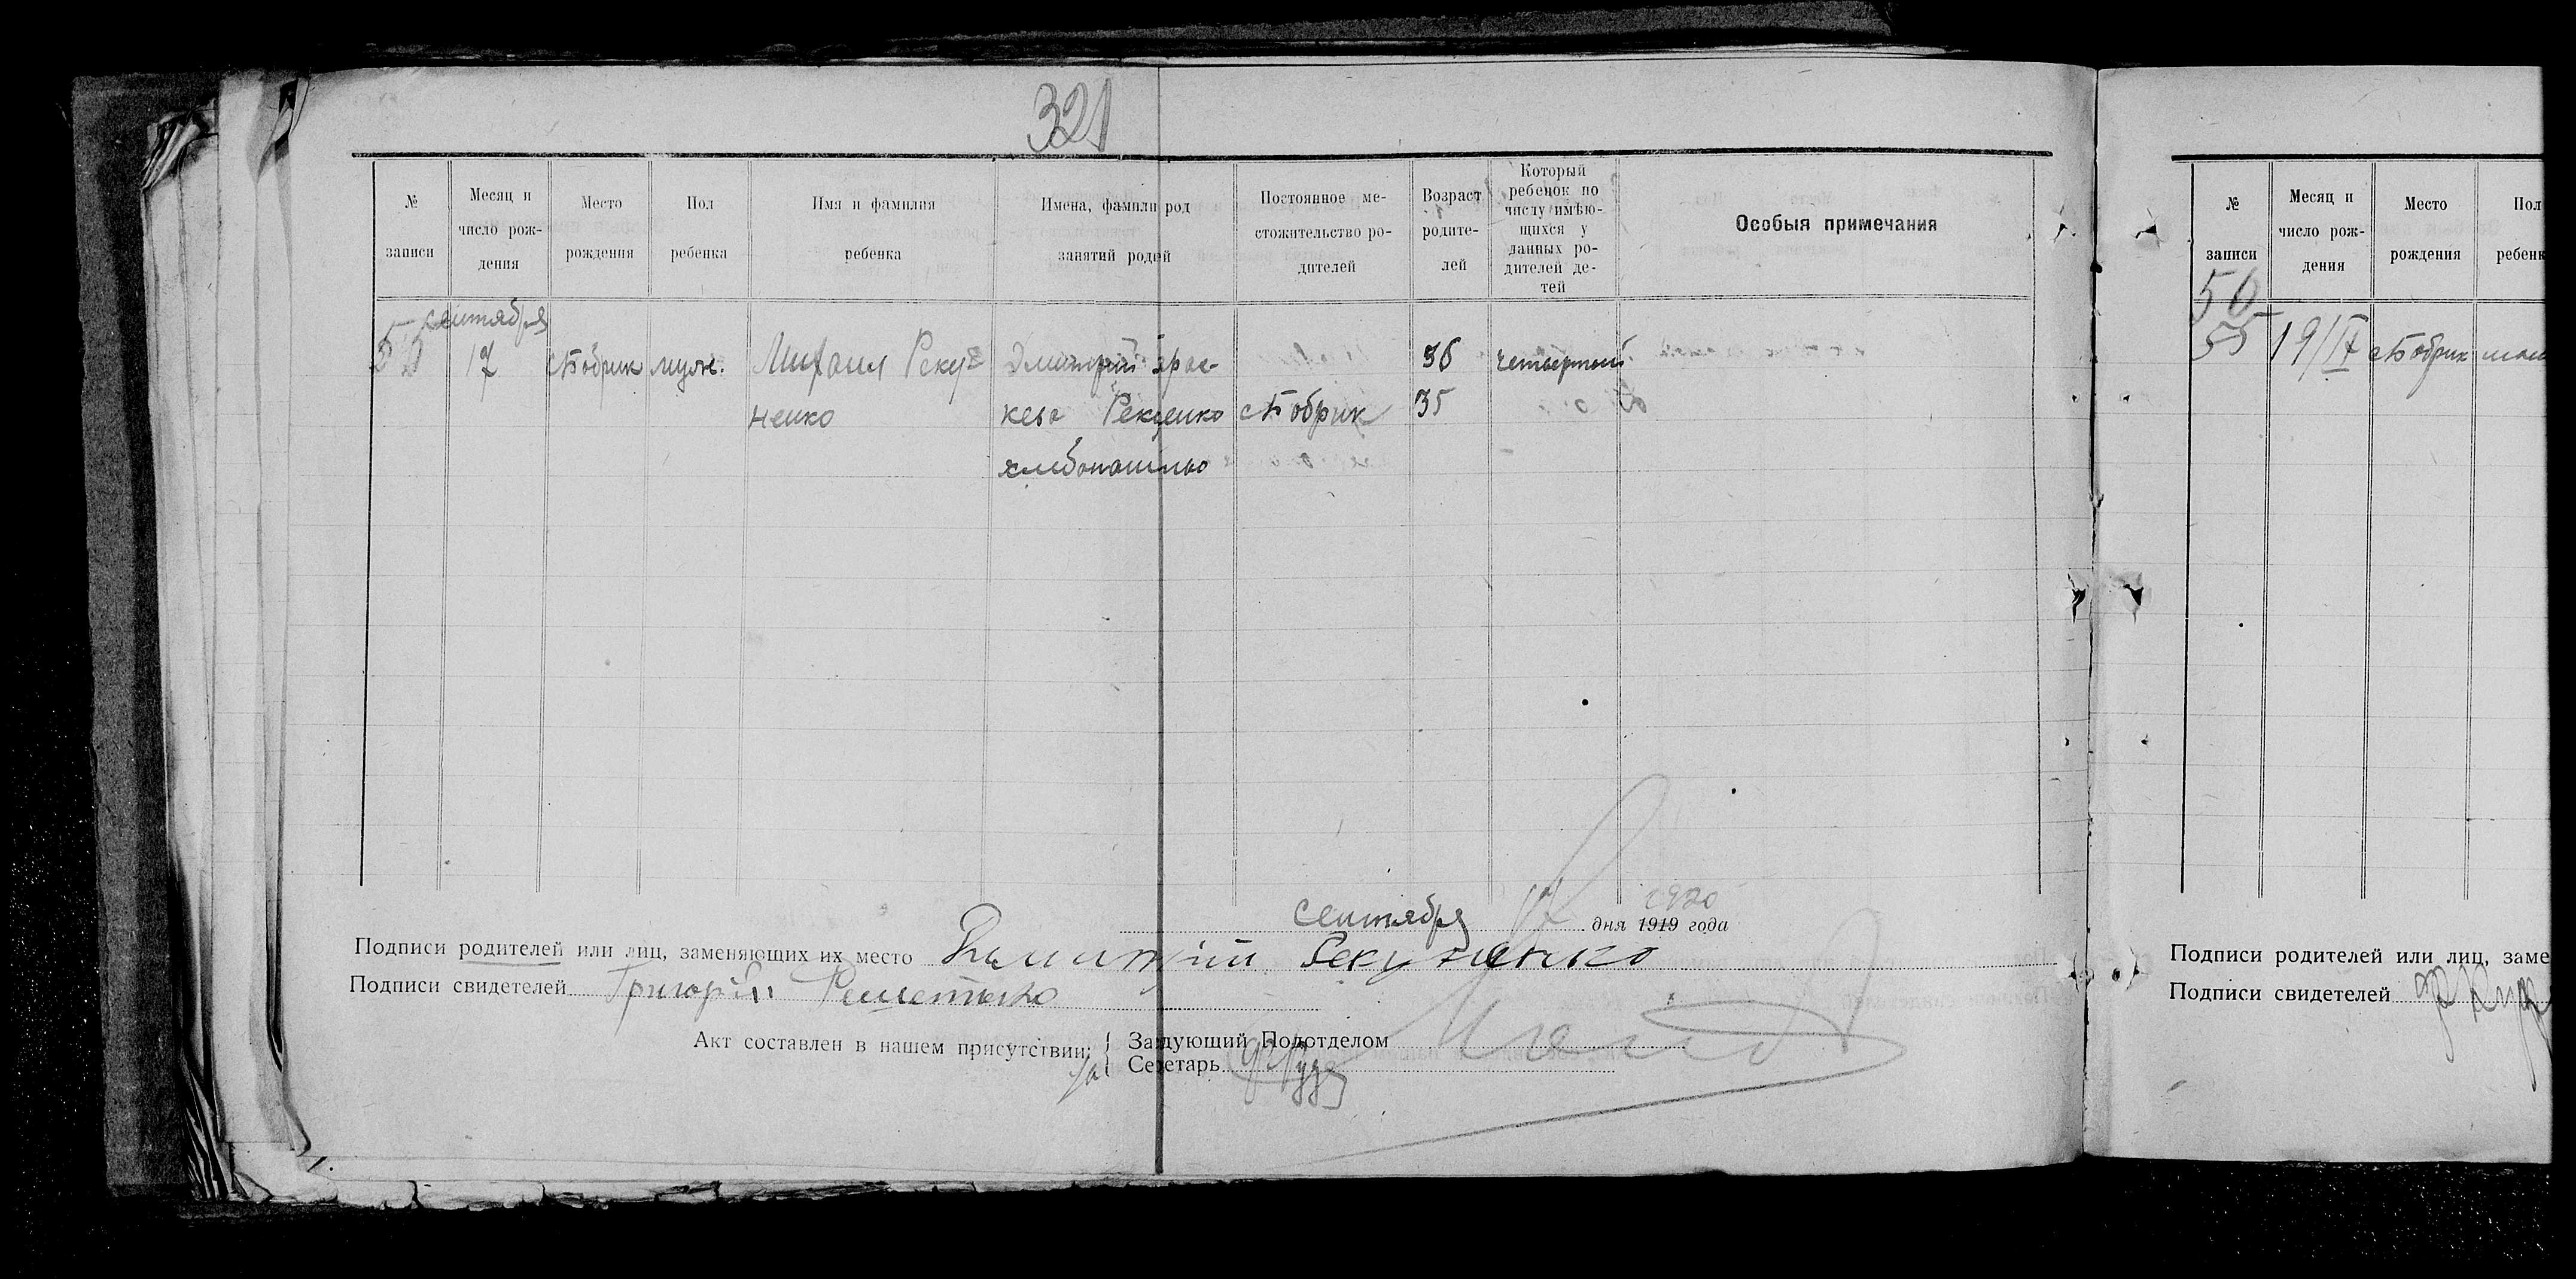 321
№ записи
Месяц и число рождения
Место рождения
Пол ребенка
Имя и фамилия ребенка
Имена, фамили род занятий родей
Постоянное местожительство родителей
Возраст родителей
Который ребенок по числу имѣющихся у данных родителей детей
Особыя примечания
сентября
17 с Бобрик муж. Михаил Реку- Дмитрий 36 четвертый
ненко Рекуненко с Бобрик 35
хлебопашество
сентября 17 дня 1919 1920 года
Подписи родителей или лиц, заменяющих их место Рекуненко
Подписи свидетелей Григорій
Акт составлен в нашем присутствии: Задующий Подотделом
за Серетарь
№ записи
Месяц и число рождения
Место рождения
Пол ребенк
50
55 19/IX с Бобрик
Подписи родителей или лиц, заме
Подписи свидетелей